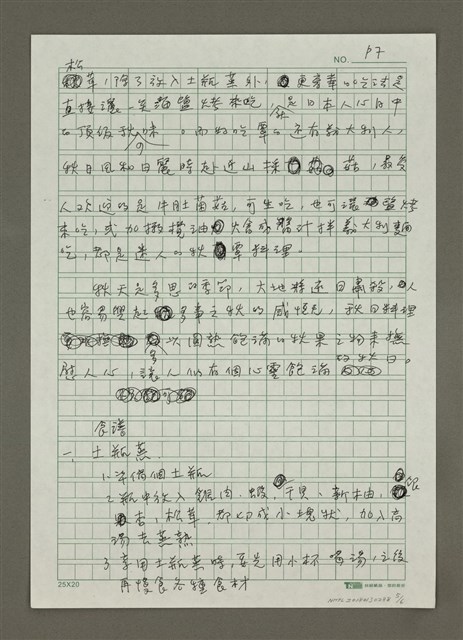 NO. P7
松
茸,除了放入土瓶蒸外,更奢華的吃法是
直接灑一些海鹽烤來吃,是日本人心目中
的頂級秋味。而好吃蕈的還有義大利人,
秋日風和日麗時赴近山採菇,最受
人歡迎的是牛肚菌菇,可生吃,也可灑鹽烤
來吃,或加橄欖油大蒜醬汁拌義大利麵
吃,都是迷人的秋蕈料理。
秋天是多思的季節,大地將逐日肅殺,人
也容易興起多事之秋的感慨,秋日料理
多以圓熟飽滿的秋果之物來撫
慰人心,讓人們有個心靈飽滿的秋日。
食譜
一、土瓶蒸
1.準備個土瓶
2.瓶中放入雞肉、蝦、干貝、新柚、銀
杏,松茸,都切成小塊狀,加入高
湯去蒸熟
3.享用土瓶蒸時,要先用小杯喝湯,之後
再慢食各種食材
25X20